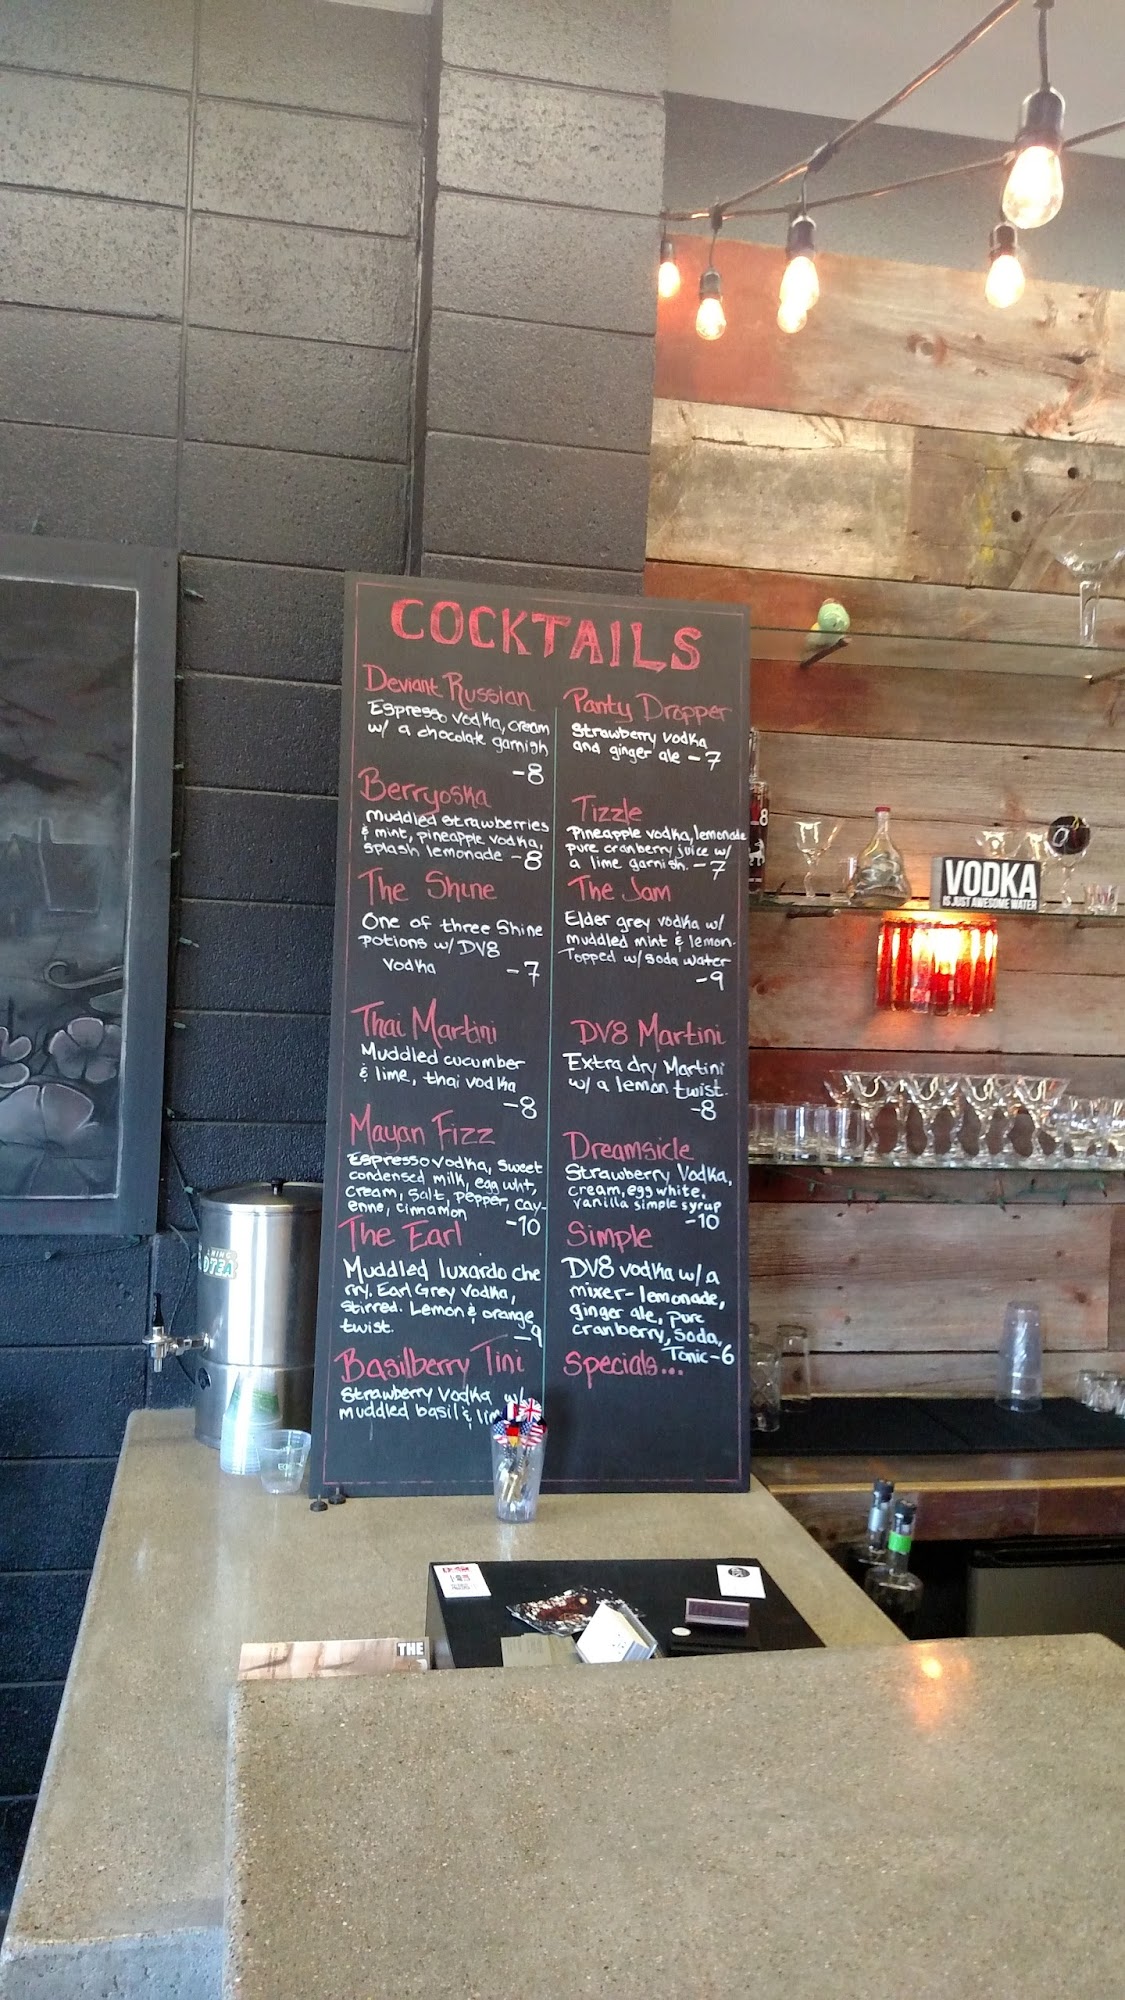 COCKTAILS
Deviant Russian
Espresso vodka, cream
w/ a chocolate garnish
-8
Berryoska
Muddled strawberries
& mint, pineapple vodka,
splash lemonade -8
The Shine
One of three Shine
potions w/ DV8
vodka -7
Thai Martini
Muddled cucumber
& lime, thai vodka
-8
Mayan Fizz
Espresso vodka, sweet
condensed milk, egg wht,
cream, salt, pepper, cay-
enne, cinnamon -10
The Earl
Muddled luxardo che
rry. Earl Grey Vodka,
stirred. Lemon & orange
twist. -9
Basilberry Tini
Strawberry Vodka w/
muddled basil &
Panty Dropper
Strawberry vodka
and ginger ale -7
Tizzle
Pineapple vodka, lemonade
pure cranberry juice w/
a lime garnish. -7
The Jam
Elder grey vodka w/
muddled mint & lemon.
Topped w/ soda water
-9
DV8 Martini
Extra dry Martini
w/ a lemon twist.
-8
Dreamsicle
Strawberry Vodka,
cream, egg white,
vanilla simple syrup
-10
Simple
DV8 vodka w/ a
mixer- lemonade,
ginger ale, pure
cranberry, soda,
Tonic-6
Specials...
VODKA
IS JUST AWESOME WATER
THE